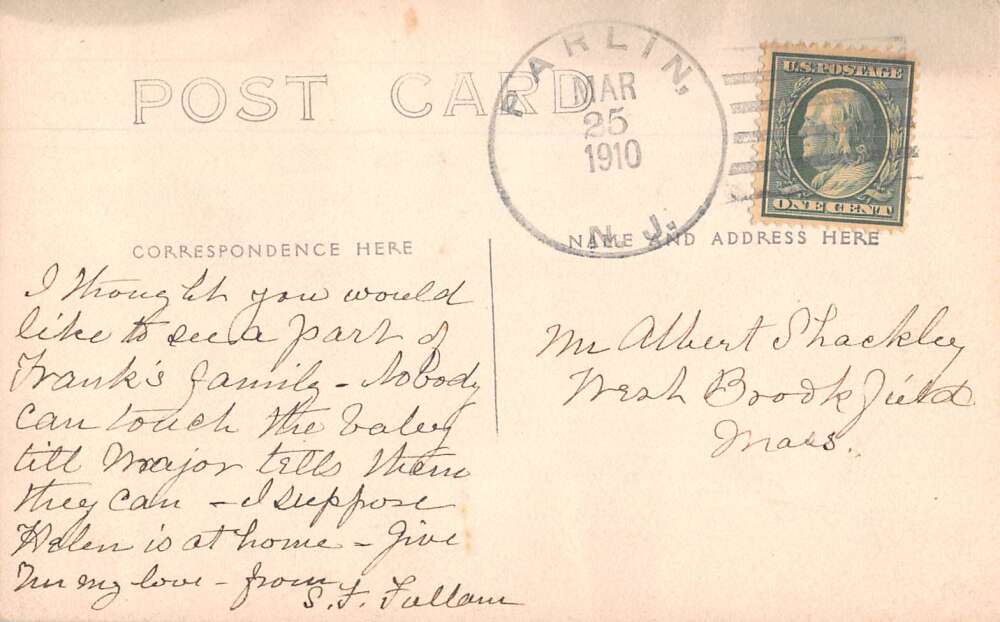 POST CARD
PARLIN,
MAR
25
1910
N.J.
U.S. POSTAGE
ONE CENT
CORRESPONDENCE HERE
NAME AND ADDRESS HERE
I thought you would
like to see a part of
Frank's family - Nobody
can touch the baby
till Major tells them
they can - I suppose
Helen is at home - Give
my love - from
S. F. Fullam
Mr Albert Shackley
West Brookfield
Mass.